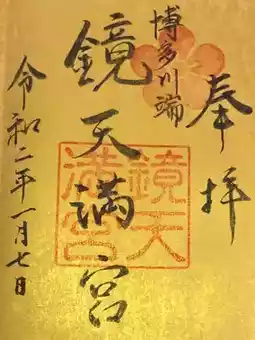 奉拝
博多川端
鏡天満宮
令和二年一月七日
鏡天
満宮